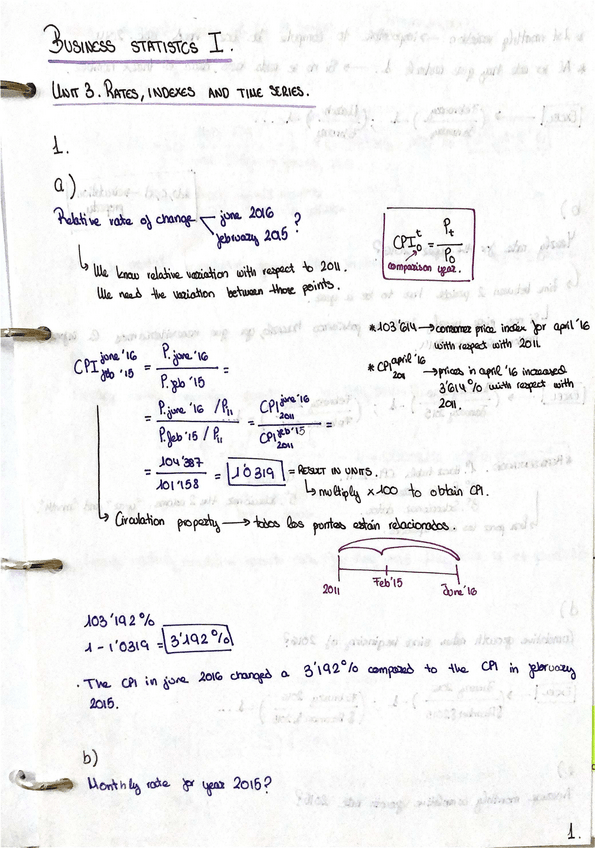 BUSINESS STATISTCS I.
UNIT 3. RATES, INDEXES AND TIME SERIES.
1.
a)
Relative rate of change june 2016 ?
february 2015
↳ We know relative variation with respect to 2011.
We need the variation between those points.
CPI₀ᵗ = Pt / P0
comparison year.
* 103'614 → consumer price index for april '16
with respect with 2011
* CPI april '16 / 2011 → prices in april '16 increased
3'614 % with respect with
2011.
CPI june '16 / feb '15 = P. june '16 / P. feb '15 =
= P. june '16 / P11 / P. feb '15 / P11 = CPI june '16 2011 / CPI feb '15 2011 =
= 104'387 / 101'158 = 1'0319 = RESULT IN UNITS.
↳ multiply x100 to obtain CPI.
↳ Circulation property → todos los puntos estain relacionados.
2011 Feb '15 June '16
103'192 %
1 - 1'0319 = 3'192 %
· The CPI in june 2016 changed a 3'192 % compared to the CPI in february
2015.
b)
Monthly rate for year 2015?
1.